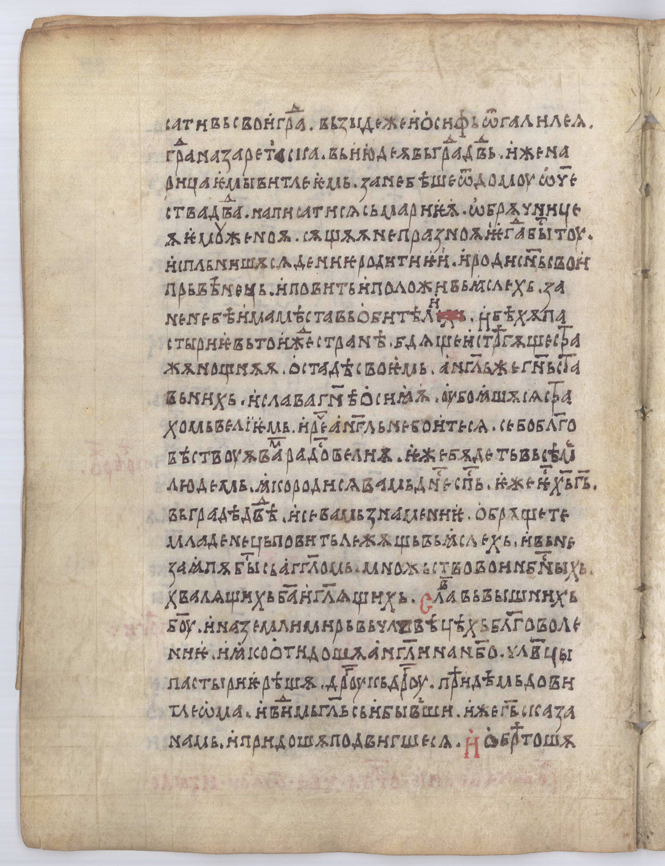 сати въ свои гра҃ . възыде же и осифь ѿ галилея .
гра҃ назаретьска . въ июдея въ гра҃ дв҃ь . иже на
рица҄емы виѳлеемь . зане бѣше ѿ домоу и ѿ ѹе
ства дв҃а . написатися съ мариꙗ . обрѫченице
ѫ емоу женоѫ . сѫщѫѫ непразноѫ . егда҃ бы҃ тоу .
исплънишѫся дение родити еи . и роди сн҃ь свои
пръвѣнець . и повить и положи въ ꙗслехь . за
не не бѣ има мѣста въ обители . и бѣхѫ па
стырие въ тои же странѣ . бдяще и стрѣгѫще стра҃
жѫ нощиѫѫ . о стадѣ своемь . аггл҃ъ же гн҃ь ста҃
въ нихь . и слава гн҃ѣ осиꙗ ѫ . и убоꙗшѫся стра҃
хомь велиемь . и ре҃ имь аггл҃ь не боитеся . се бо бл҃го
вѣствоуѫ ва҃ радо҃ велиѫ . ꙗже бѫдеть въсѣ҃
людемь . ꙗко родися вамь дн҃е сп҃ь . иже е҃ х҃ъ г҃ь .
въ градѣ дв҃ѣ . и се вамь знамение . обрѫщете
младенець повить лежѫщь въ ꙗслехь . и вьне
заапѫ бы҃ съ аггл҃омь . множьство вои нб҃ныхь .
хвалящихь б҃а и гл҃ящихь . слава въ вышнихь
б҃оу . и на земли мирь въ чл҃вѣцѣхь бл҃говоле
ние . и ꙗко отидошѫ аггл҃и на нб҃о . чл҃вци
пастырие рѣшѫ . дроу҃ къ дроу҃ . прѣидѣмь до ви
тлеѡма . и види҃мь гл҃ь сьи бывши . иже г҃ь сказа
намь . и придошѫ подвигшеся . и обрѣтошѫ